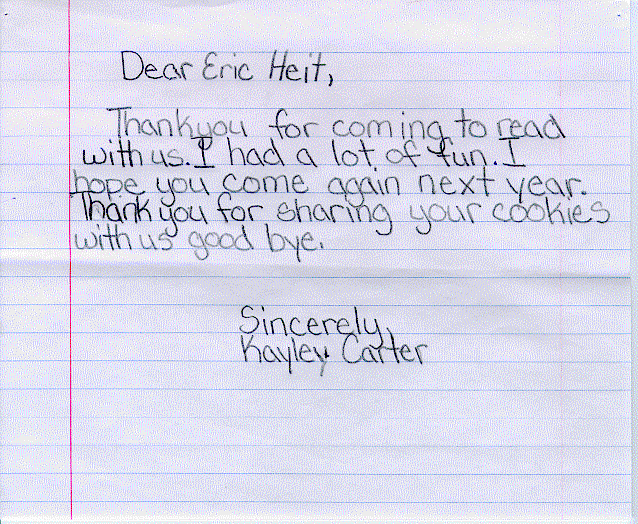 Dear Eric Heit,
Thankyou for coming to read
with us. I had a lot of fun. I
hope you come again next year.
Thank you for sharing your cookies
with us good bye.
Sincerely,
Kayley Carter